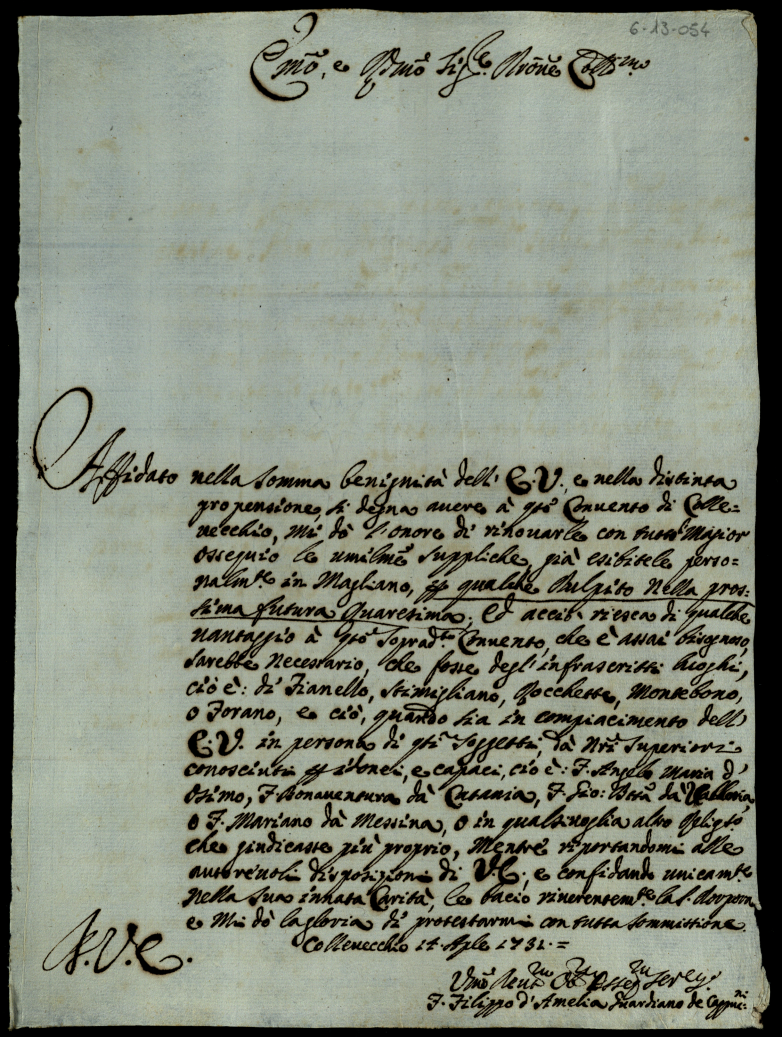 6-13-054
Emo, e Rdmo Sig.e Prone Colmo
Affidato nella somma benignità dell' E.V., e nella distinta
propensione, si degna avere à qto Convento di Colle=
vecchio, mi dò l'onore di rinovarle con tutto Magior
ossequio le umilme suppliche, già esibitele perso=
nalmte in Magliano, p qualche Pulpito nella pros=
sima futura Quaresima. Ed acciò riesca di qualche
vantaggio à qto sopradto Convento, che è assai bisognoso,
sarebbe necessario, che fosse degl'infrascritti luoghi,
ciò è: di Fianello, Stimigliano, Rocchette, Montebono,
o Forano, e ciò, quando sia in compiacimento dell'
E.V. in persona di qti soggetti, dà Nri Superiori
conosciuti p idonei, e capaci, ciò è: F. Angelo Maria d'
Osimo, F. Bonaventura dà Catania, F. Gio: Btta dà
o F. Mariano dà Messina, o in qualsivoglia altro Religso
che giudicasse più proprio, Mentre riportandomi alle
autorevoli disposizioni di V.E., e confidando unicamte
nella sua innata Carità, le bacio riverentemte la S. Porpora
e Mi dò la gloria di protestarmi con tutta sommissione.
Collevecchio 14 Aple 1731.=
D.V.E.
Umo Devmo Obmo Osseqmo Serv.
F. Filippo d'Amelia Guardiano de Cappuni